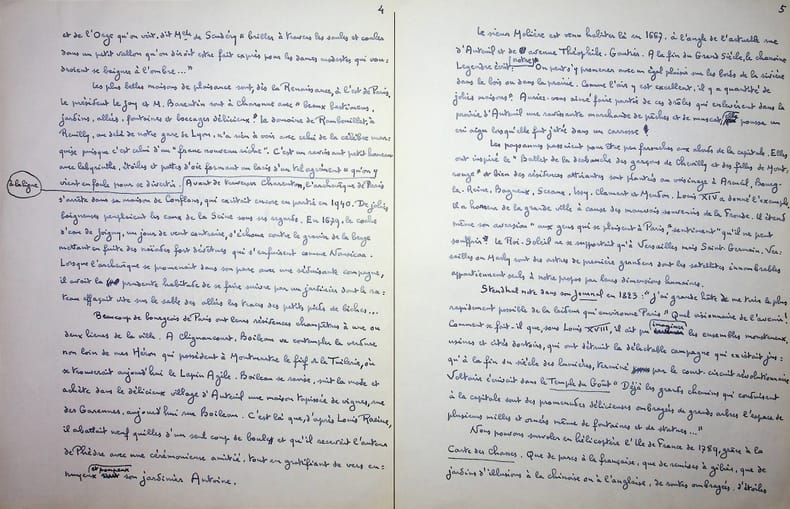 4
et de l'Orge qu'on voit, dit Melle de Scudéry "briller à travers les saules et couler
dans un petit vallon qu'on diroit être fait exprès pour les dames modestes qui vou-
droient se baigner à l'ombre..."
Les plus belles maisons de plaisance sont, dès la Renaissance, à l'est de Paris.
Le président le Jay et M. Barentin sont à Charonne avec "beaux bastimens,
jardins, allées, fontaines et boccages délicieux". Le domaine de Rambouillet, à
Reuilly, au delà de notre gare de Lyon, n'a rien à voir avec celui de la célèbre mar-
quise puisque c'est celui d'un "franc nouveau riche". C'est un ravissant petit hameau
avec labyrinthe, étoiles et pattes d'oie formant un lacis d'un tel agrément "qu'on y
vient en foule pour se divertir. Avant de traverser Charenton, l'archevêque de Paris
à la ligne
s'arrête dans sa maison de Conflans, qui existait encore en partie en 1940. De jolies
baigneuses peuplaient les eaux de la Seine sous ses regards. En 1679, le coche
d'eau de Joigny, un jour de vent contraire, s'échoue contre le gravier de la berge
mettant en fuite des naïades fort dévêtues qui s'enfuirent comme Nausicaa.
Lorsque l'archevêque se promenait dans son parc avec une séduisante compagne,
il avait la prudente habitude de se faire suivre par un jardinier dont le ra-
teau effaçait vite sur le sable des allées les traces des petits pieds de biches...
Beaucoup de bourgeois de Paris ont leurs résidences champêtres à une ou
deux lieues de la ville. A Clignancourt, Boileau va contempler la verdure
non loin de mes Héron qui possèdent à Montmartre le fief de la Tuilerie, où
se trouverait aujourd'hui le Lapin Agile. Boileau se ravise, suit la mode et
achète dans le délicieux village d'Auteuil une maison tapissée de vignes, rue
des Garennes, aujourd'hui rue Boileau. C'est là que, d'après Louis Racine,
il abattait neuf quilles d'un seul coup de boules et qu'il recevait l'auteur
de Phèdre avec une cérémonieuse amitié, tout en gratifiant de vers en-
et pompeux
nuyeux son jardinier Antoine.
5
Le vieux Molière est venu habiter là en 1667, à l'angle de l'actuelle rue
d'Auteuil et de avenue Théophile-Gautier. A la fin du Grand Siècle, le chanoine
notre
Legendre écrit: "On peut s'y promener avec un égal plaisir sur les bords de la rivière
dans le bois ou dans la prairie. Comme l'air y est excellent, il y a quantité de
jolies maisons". Auriez-vous aimé faire partie de ces drôles qui enlevèrent dans la
prairie d'Auteuil une ravissante marchande de pêches et de muscat, pousse un
cri aigu lorsqu'elle fut jetée dans un carrosse!
Les paysannes passaient pour être peu farouches aux abords de la capitale. Elles
ont inspiré le "Ballet de la débauche des garçons de Chevilly et des filles de Mont-
rouge" et bien des résidences attirantes sont plantées au voisinage à Arcueil, Bourg-
la-Reine, Bagneux, Sceaux, Issy, Clamart et Meudon. Louis XIV a donné l'exemple.
Il a horreur de la grande ville à cause des mauvais souvenirs de la Fronde. Il étend
même son aversion "aux gens qui se plaisent à Paris, "sentiment" qu'il ne peut
souffrir". Le Roi-Soleil ne se supportait qu'à Versailles mais Saint-Germain, Ver-
sailles ou Marly sont des astres de première grandeur dont les satellites innombrables
appartiennent seuls à notre propos par leurs dimensions humaines.
Stendhal note dans son Journal en 1823: "j'ai grande hâte de me tirer le plus
rapidement possible de la laideur qui environne Paris". Quel visionnaire de l'avenir!
imaginer
Comment se fait-il que, sous Louis XVIII, il ait pu les ensembles monstrueux,
usines et cités dortoirs, qui ont détruit la délectable campagne qui existait jus-
qu'à la fin du siècle des lumières, terminé par le court-circuit révolutionnaire
Voltaire écrivait dans le Temple du Goût "Déjà les grands chemins qui conduisent
à la capitale sont des promenades délicieuses ombragées de grands arbres l'espace de
plusieurs milles et ornées même de fontaines et de statues..."
Nous pouvons survoler en hélicoptère l'Ile de France de 1789, grâce à la
Carte des Chasses. Que de parcs à la française, que de remises à gibier, que de
jardins d'illusions à la chinoise ou à l'anglaise, de routes ombragées, d'étoiles